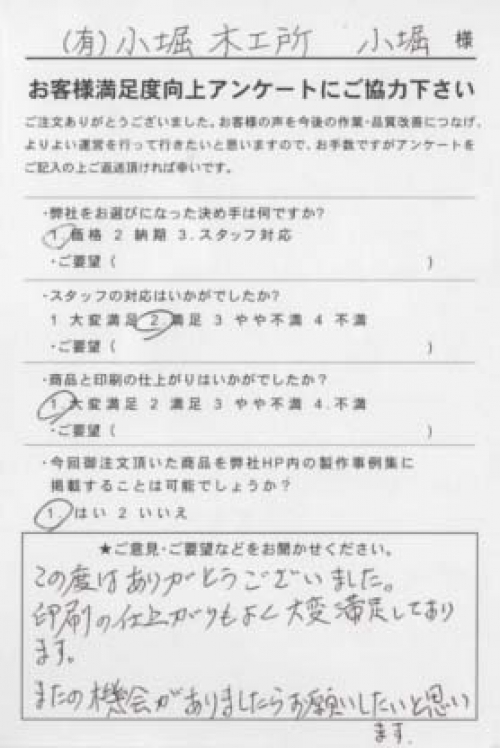 (有)小堀木工所 小堀 様
お客様満足度向上アンケートにご協力下さい
ご注文ありがとうございました。お客様の声を今後の作業・品質改善につなげ、
よりよい運営を行って行きたいと思いますので、お手数ですがアンケートを
ご記入の上ご返送頂ければ幸いです。
・弊社をお選びになった決め手は何ですか?
1.価格 2 納期 3.スタッフ対応
・ご要望( )
・スタッフの対応はいかがでしたか?
1 大変満足 2.満足 3 やや不満 4 不満
・ご要望( )
・商品と印刷の仕上がりはいかがでしたか?
1.大変満足 2 満足 3 やや不満 4.不満
・ご要望( )
・今回御注文頂いた商品を弊社HP内の製作事例集に
掲載することは可能でしょうか?
1.はい 2 いいえ
★ご意見・ご要望などをお聞かせください。
この度はありがとうございました。
印刷の仕上がりもよく大変満足しており
ます。
またの機会がありましたらお願いしたいと思い
ます.